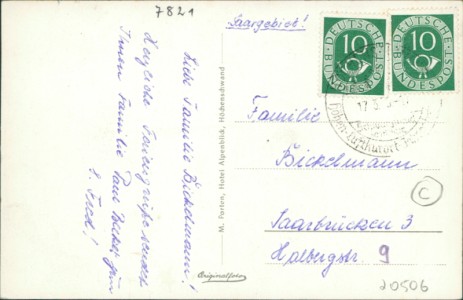 7821
Liebe Familie Bickelmann!
Herzliche Feriengrüße sendet
Ihnen Familie Paul
M. Farten, Hotel Alpenblick, Höchenschwand
Originalfoto
Saargebiet!
DEUTSCHE
10
BUNDESPOST
DEUTSCHE
10
BUNDESPOST
Familie
Bickelmann
Saarbrücken 3
Halbergstr 9
C
20506